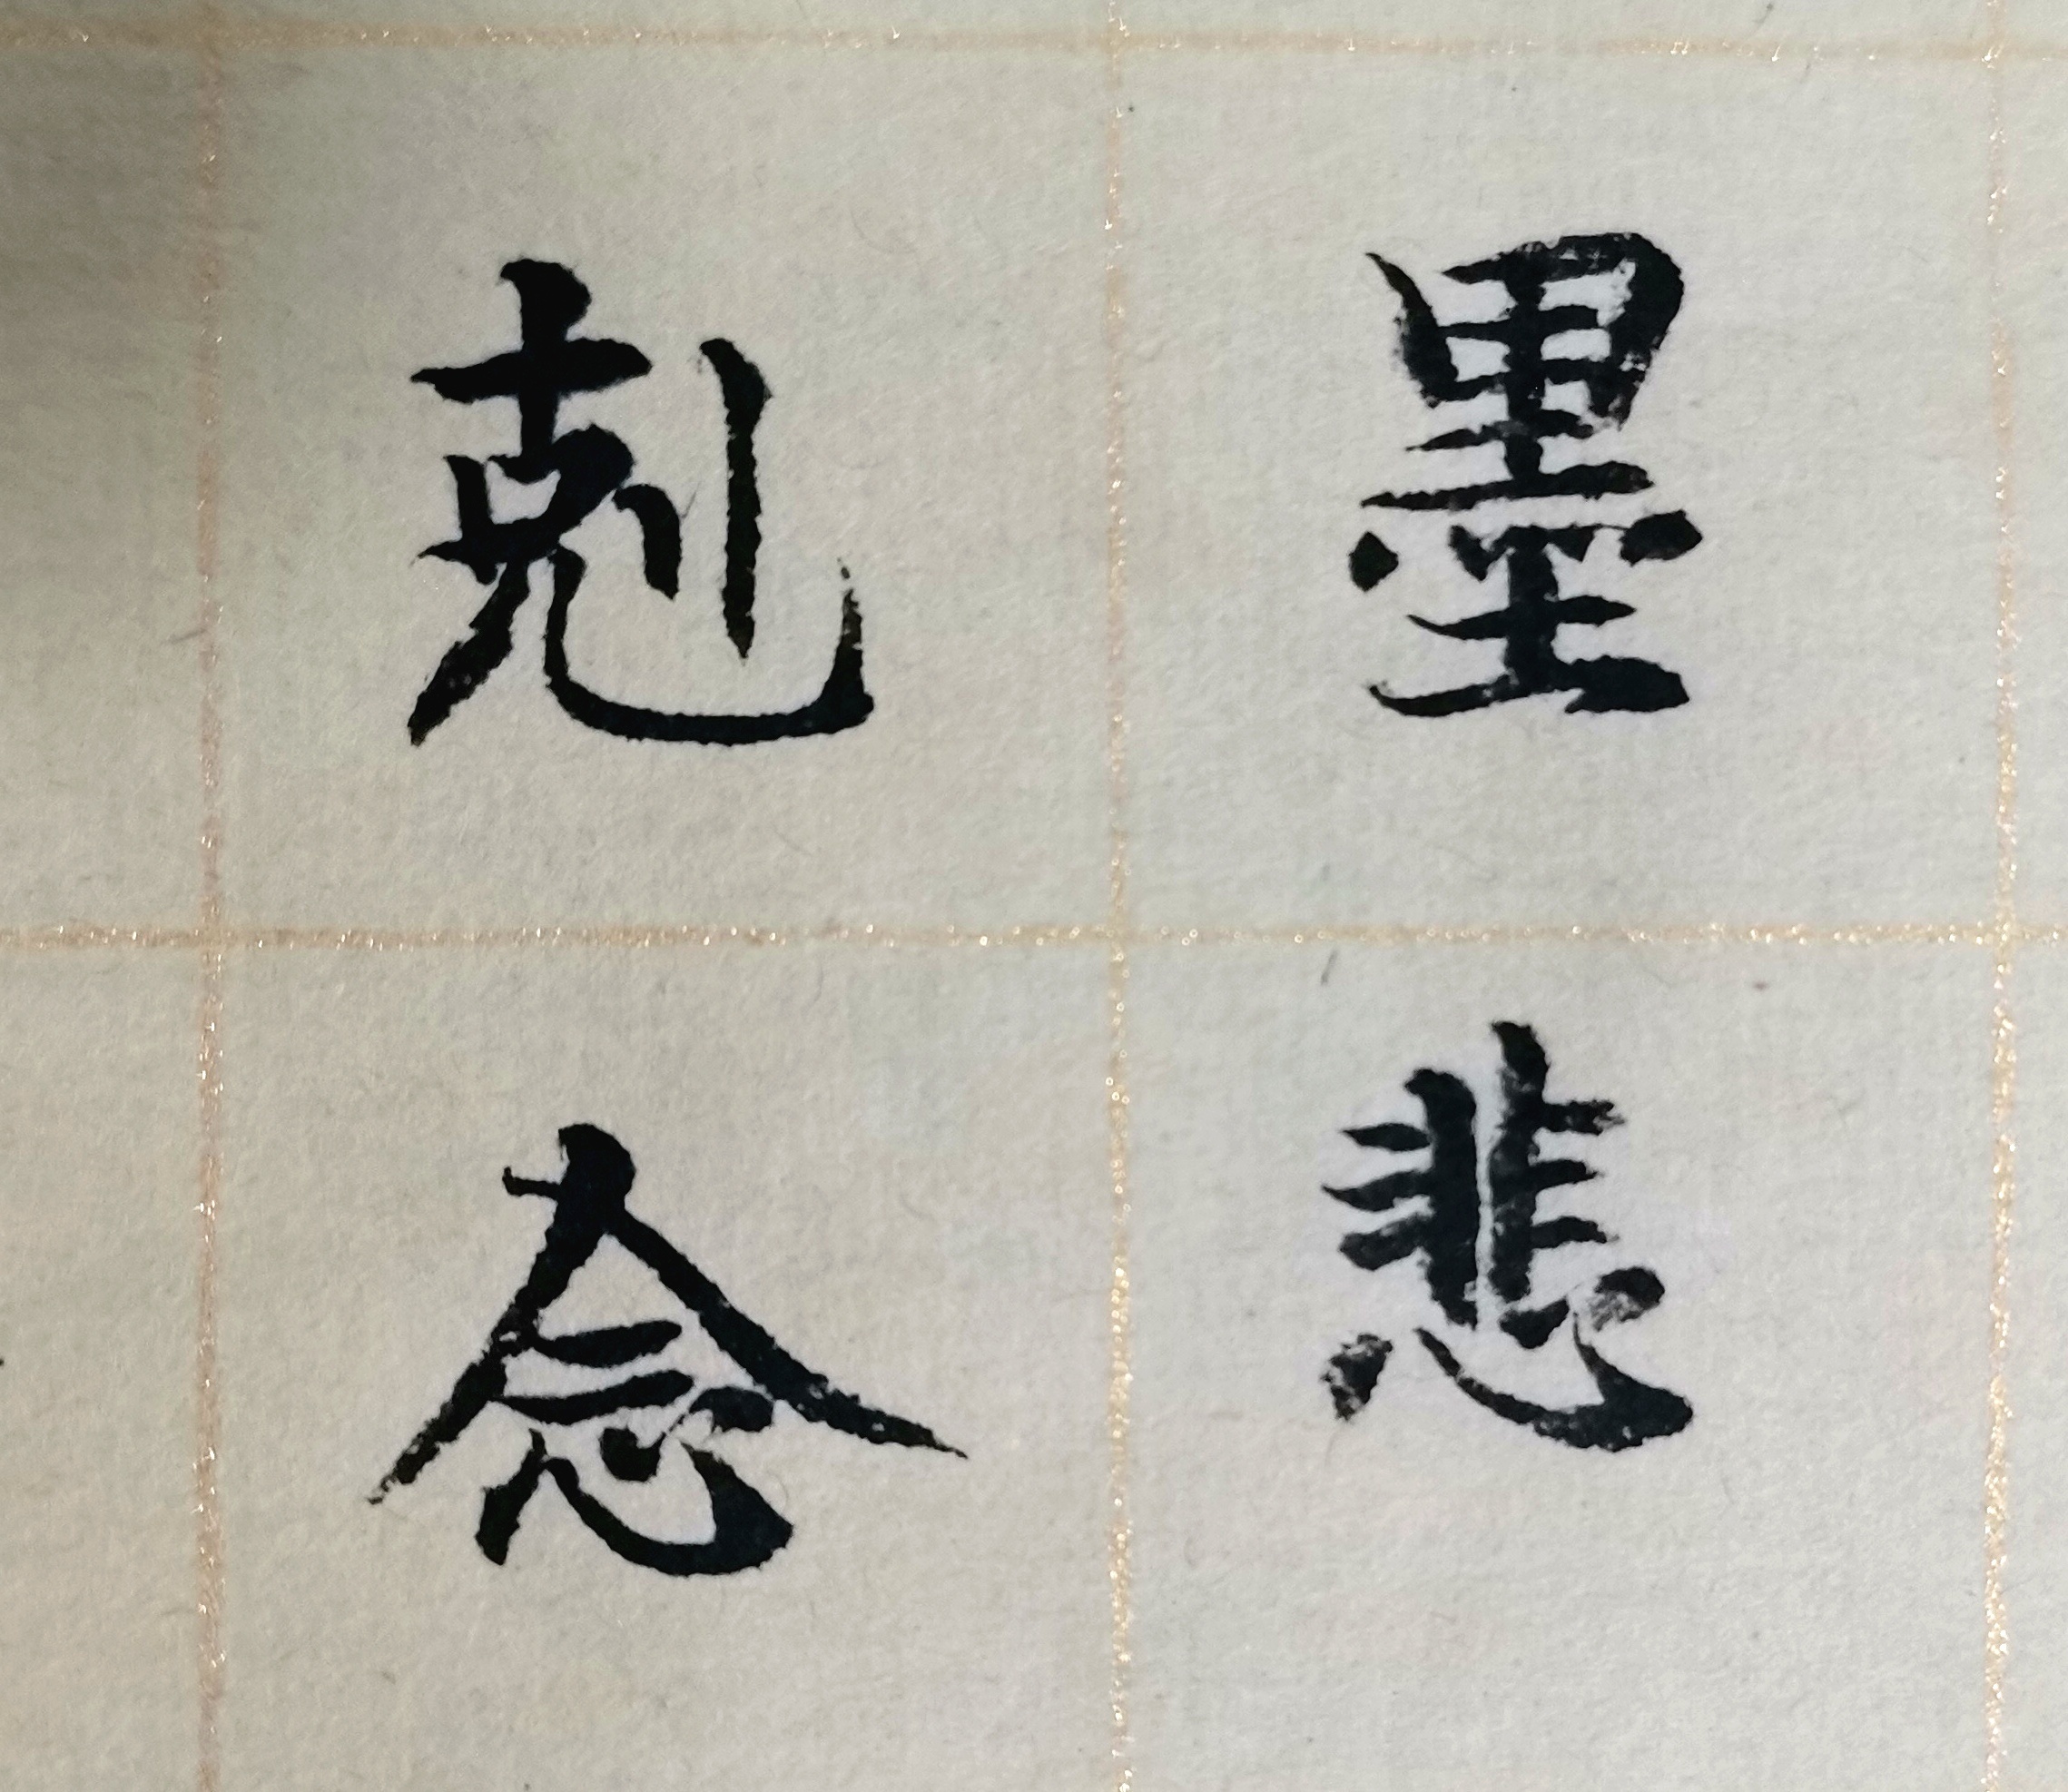 墨悲
剋念